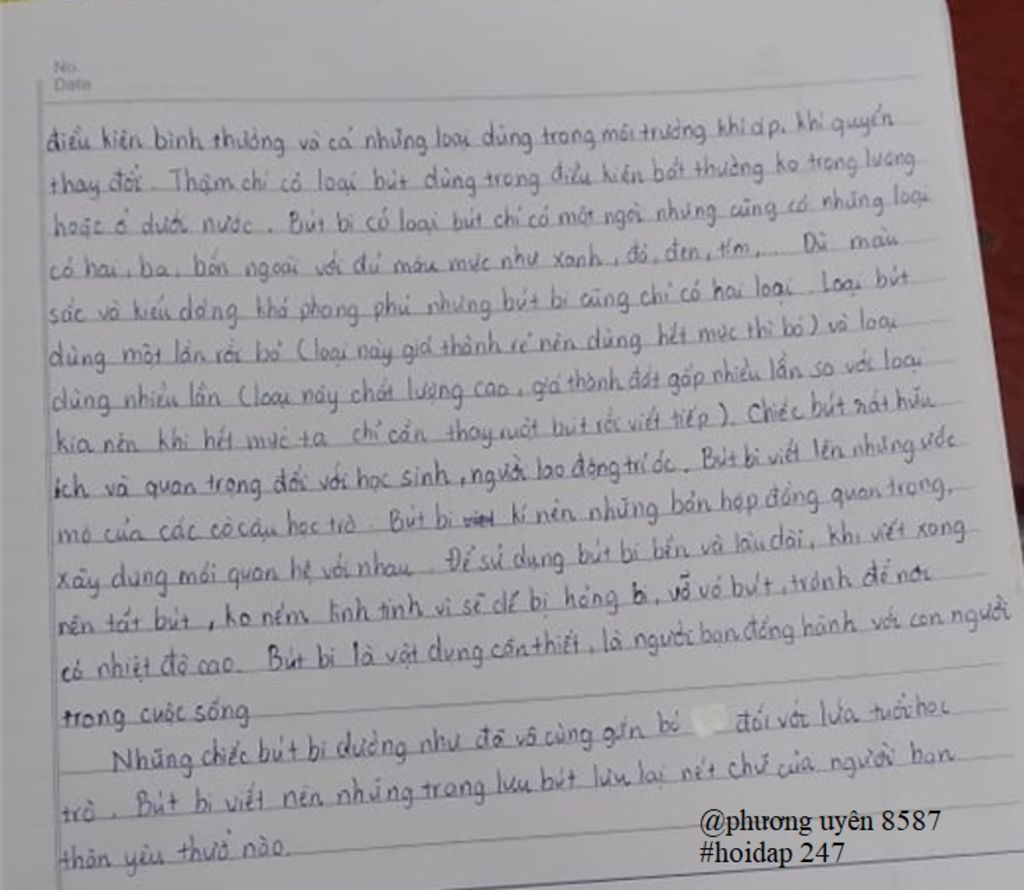 No.
Date
điều kiện bình thường và cả những loại dùng trong môi trường khí áp, khí quyển
thay đổi. Thậm chí có loại bút dùng trong điều kiện bất thường ko trọng lượng
hoặc ở dưới nước. Bút bi có loại bút chỉ có một ngòi nhưng cũng có những loại
có hai, ba, bốn ngoài với đủ màu mực như xanh, đỏ, đen, tím,... Dù màu
sắc và kiểu dáng khá phong phú nhưng bút bi cũng chỉ có hai loại. Loại bút
dùng một lần rồi bỏ (loại này giá thành rẻ nên dùng hết mực thì bỏ) và loại
dùng nhiều lần (loại này chất lượng cao, giá thành đắt gấp nhiều lần so với loại
kia nên khi hết mực ta chỉ cần thay ruột bút rồi viết tiếp). Chiếc bút rất hữu
ích và quan trọng đối với học sinh, người lao động trí óc. Bút bi viết lên những ước
mơ của các cô cậu học trò. Bút bi kí nên những bản hợp đồng quan trọng,
xây dựng mối quan hệ với nhau. Để sử dụng bút bi bền và lâu dài, khi viết xong
nên tắt bút, ko ném linh tinh vì sẽ dễ bị hỏng bi, vỡ vỏ bút, tránh để nơi
có nhiệt độ cao. Bút bi là vật dụng cần thiết, là người bạn đồng hành với con người
trong cuộc sống
Những chiếc bút bi dường như đã vô cùng gắn bó đối với lứa tuổi học
trò. Bút bi viết nên những trang lưu bút lưu lại nét chữ của người bạn
thân yêu thuở nào.
@phương uyên 8587
#hoidap 247